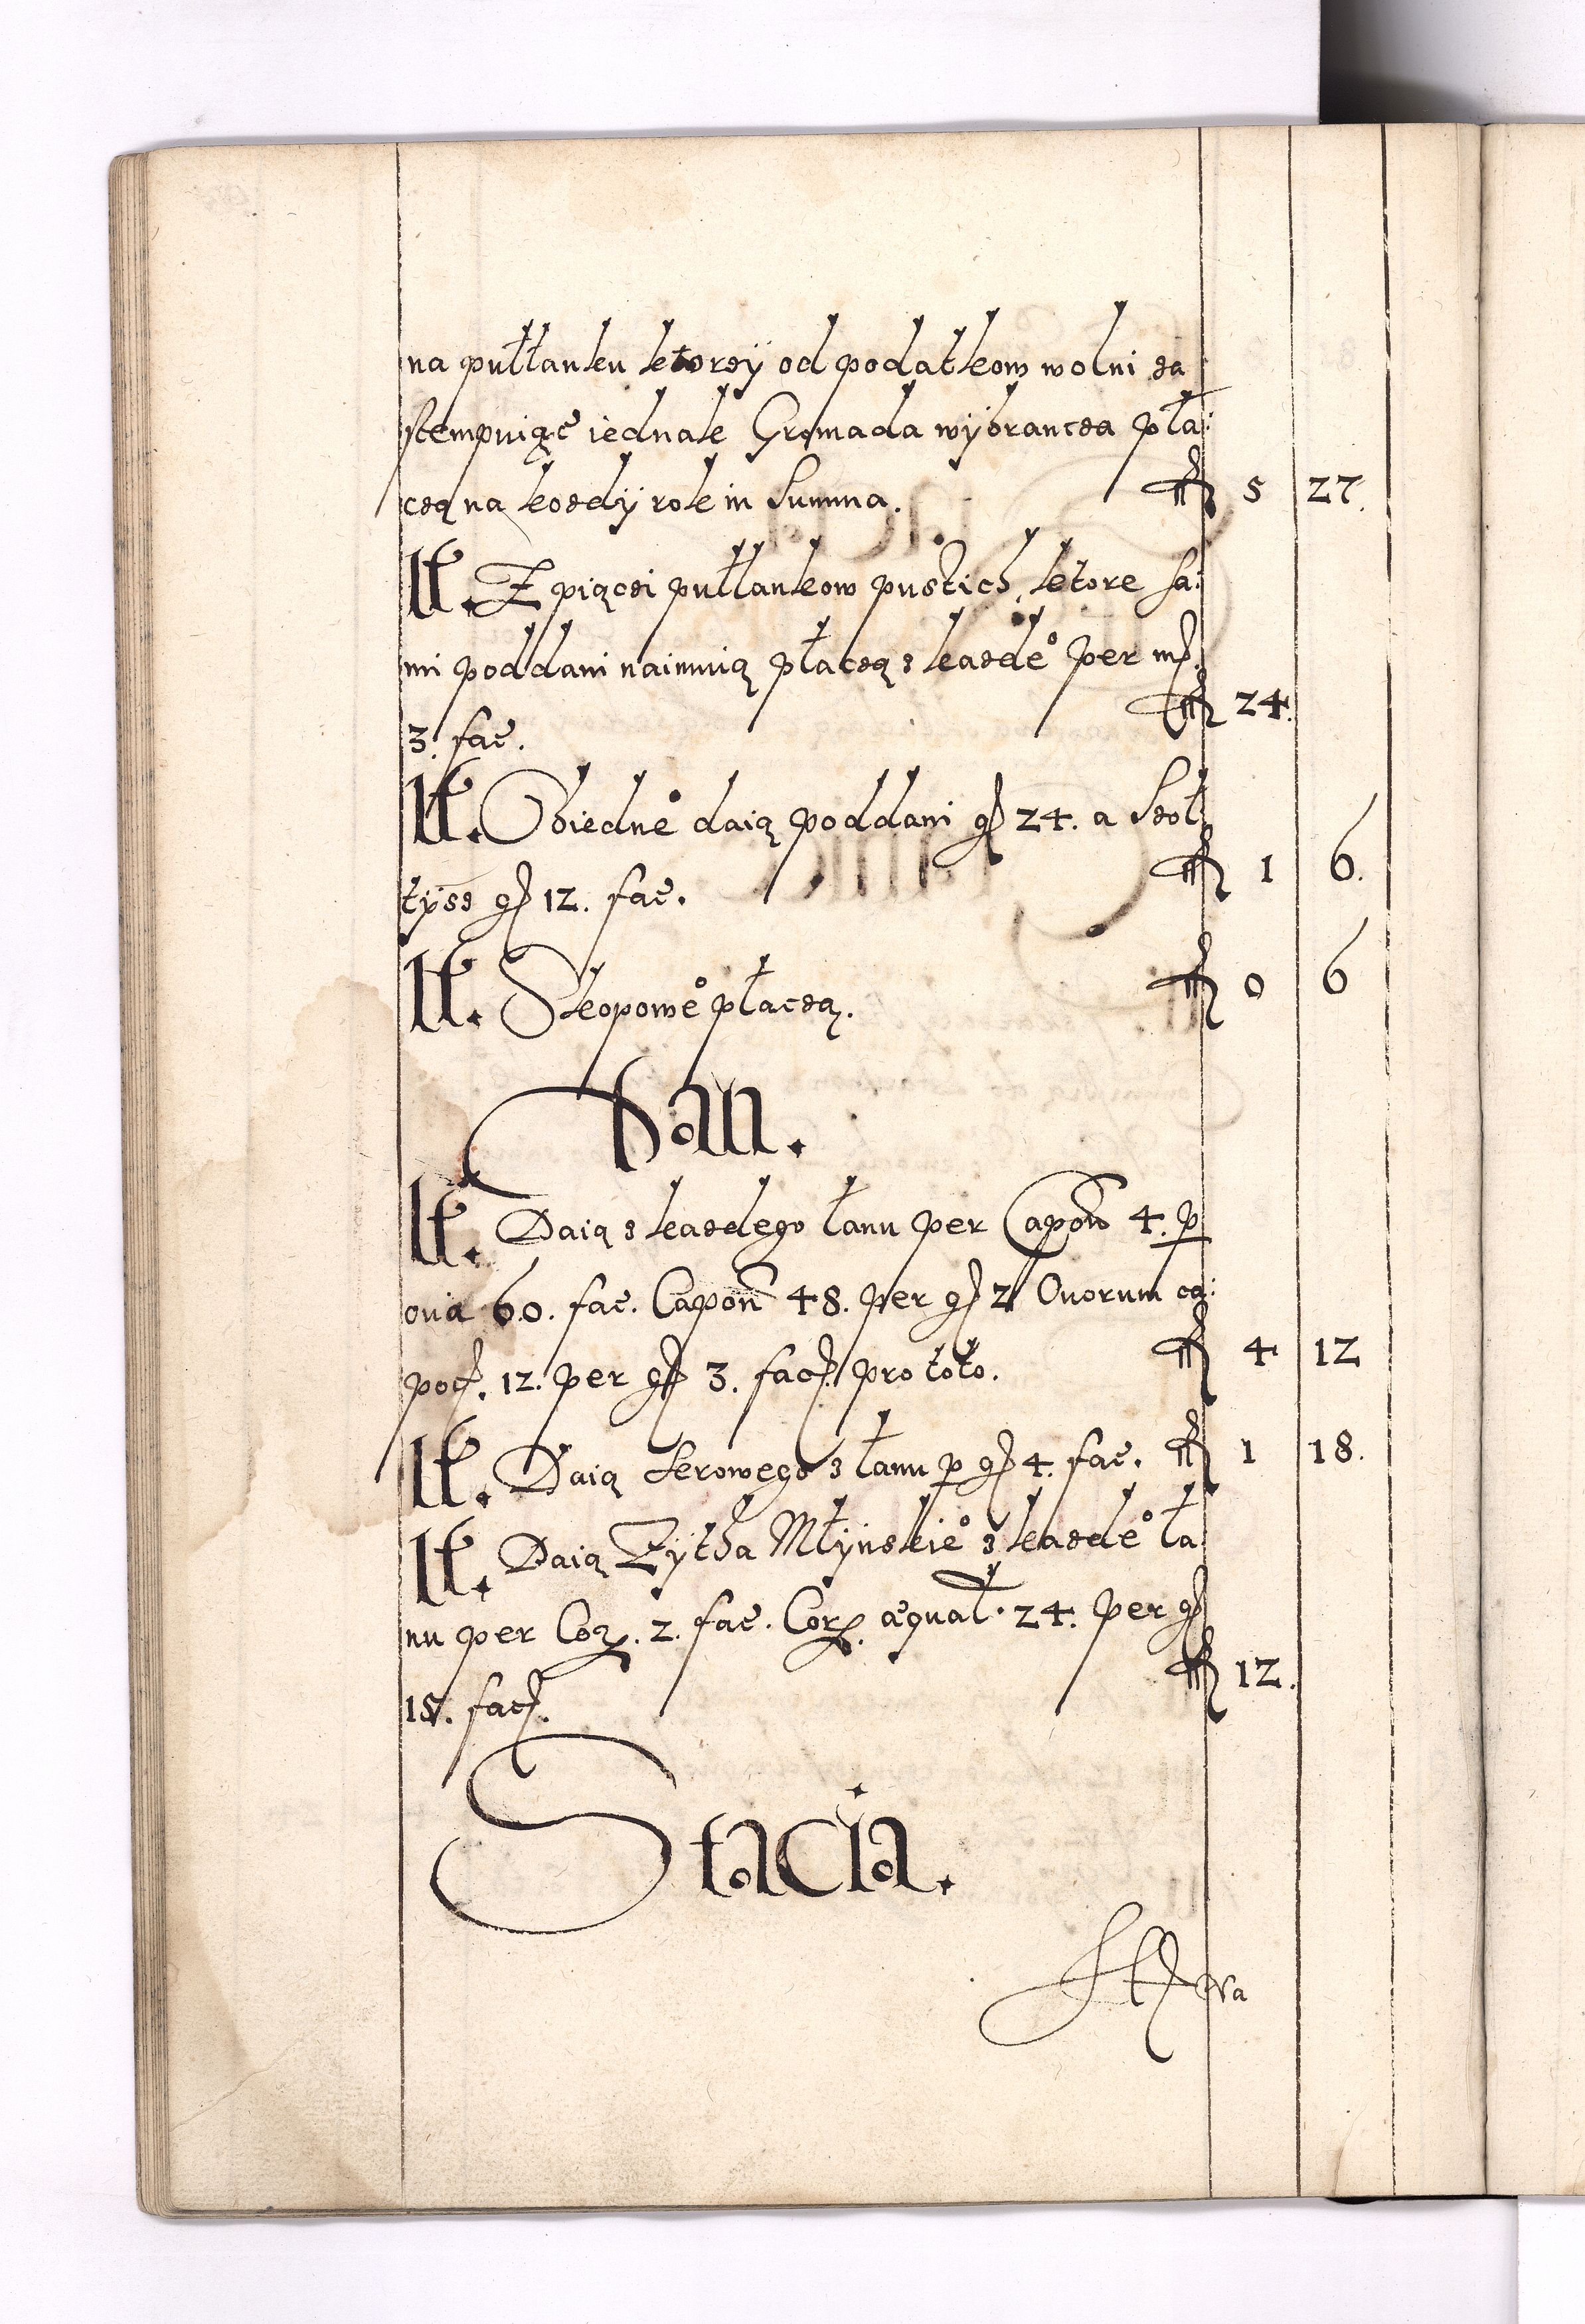 na pułłanku ktorzÿ od podatkow wolni za
stempuiąc iednak Gromada wÿbranca pła:
czą na kozdÿ rok in Summa. fl 5 27.
It. Z piączi pułłankow pustich, ktore sa:
mi poddani naimuią płaczą z kazde° per mr.
3. fac. fl 24.
It. Obiedne° daią poddani gr 24. a Szoł
tÿss gr 12. fac. fl 1 6.
It. Skopowe° płaczą. fl 0 6
Dan.
It. Daią z kazdego łanu per Capon 4. p
oua 60. fac. Capon 48. per gr 2 Ouorum ca:
poc. 12. per gr 3. fac. pro toto. fl 4 12
It. Daią Serowego z łanu p gr 4. fac. fl 1 18.
It. Daią Zÿtha Młÿnskie° z kazde° ła
nu per Cor. 2. fac. Cor. æqual. 24. per gr
15. fac. fl 12.
Stacia.
Na